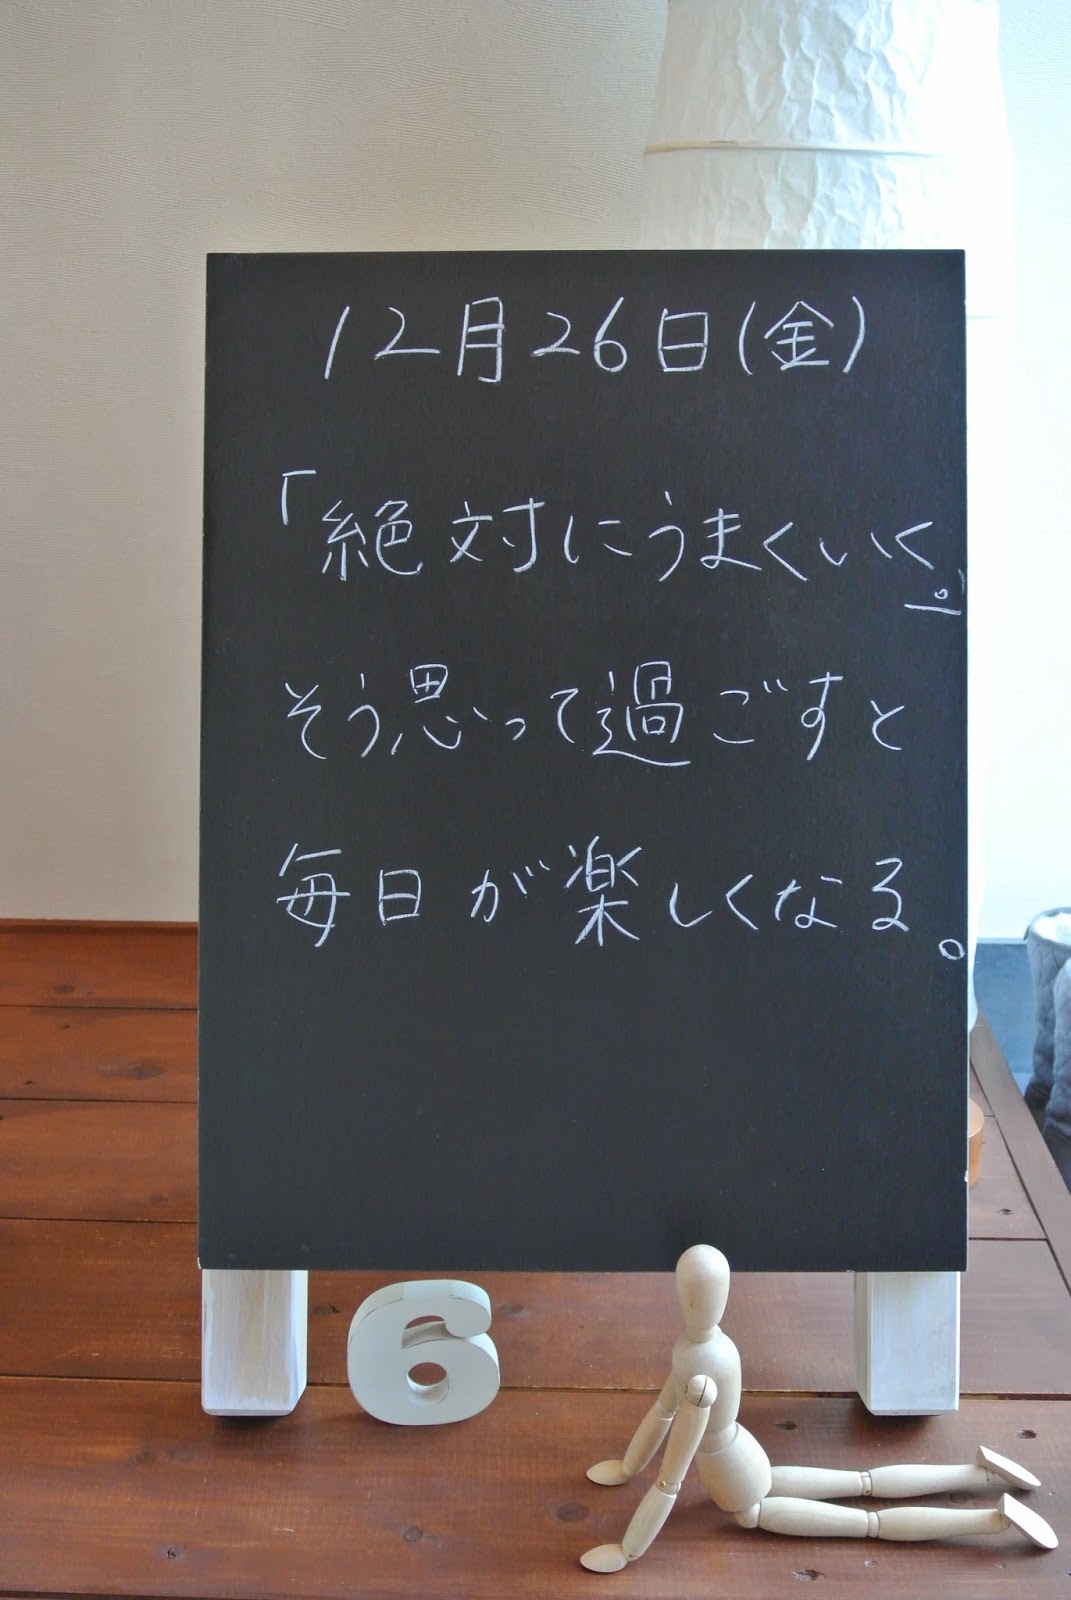 12月26日(金)
「絶対にうまくいく。」
そう思って過ごすと
毎日が楽しくなる。
6